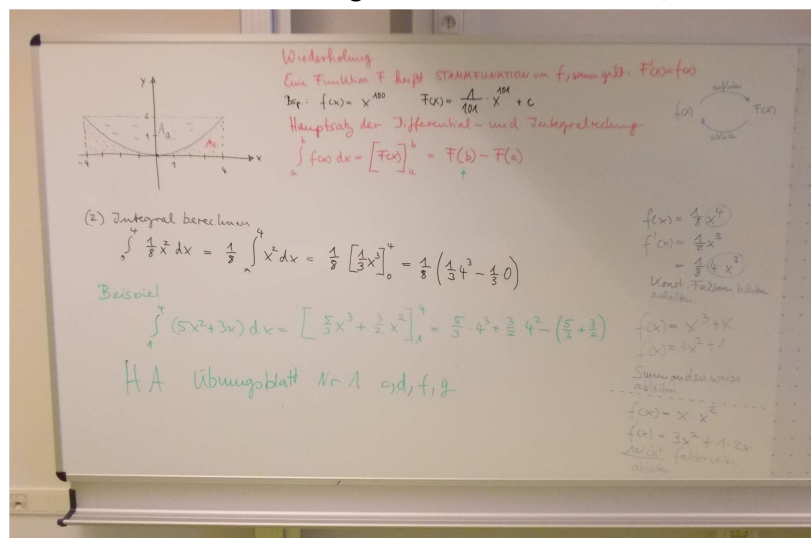 Wiederholung
Eine Funktion F heißt STAMMFUNKTION von f, wenn gilt: F'(x)=f(x)
Bsp.: f(x) = x^100 F(x) = 1/101 · x^101 + c
Hauptsatz der Differential- und Integralrechnung
∫_a^b f(x) dx = [F(x)]_a^b = F(b) - F(a)
y
2
1
A₂
A₁
-4
1
4
x
f(x)
F(x)
aufleiten
ableiten
(2) Integral berechnen
∫^4 1/8 x² dx = 1/8 ∫^4 x² dx = 1/8 [1/3 x³]_0^4 = 1/8 (1/3 4³ - 1/3 0)
Beispiel
∫_1^4 (5x²+3x) dx = [5/3 x³ + 3/2 x²]_1^4 = 5/3 · 4³ + 3/2 · 4² - (5/3 + 3/2)
HA Übungsblatt Nr 1 c,d,f,g
f(x) = 1/8 x^4
f'(x) = 1/2 x³
= 1/8 (4·x³)
Konst. Faktoren bleiben
erhalten
f(x) = x³ + x
f'(x) = 3x² + 1
Summandenweise
ableiten
f(x) = x · x²
f(x) = 3x² + 1 · 2x
nicht faktorweise
ableiten